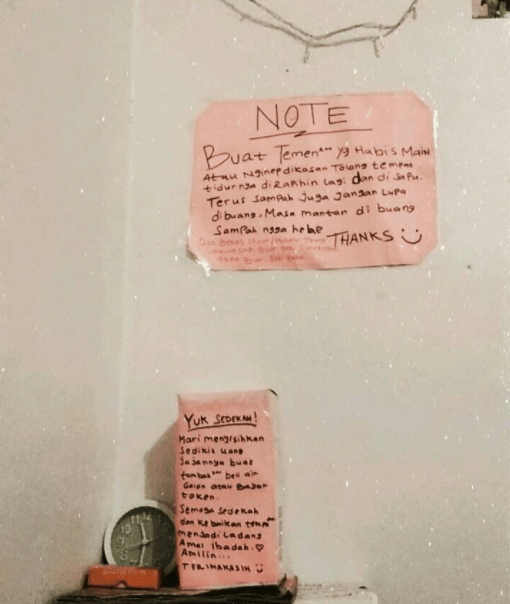 NOTE
Buat Temen"" yg Habis Main
Atau Nginep dikosan Tolong tempat
tidurnya diRapihin Lagi dan di sapu.
Terus Sampah Juga Jangan Lupa
dibuang. Masa mantan di buang
Sampah ngga hehe
THANKS
YUK SEDEKAH!
Mari menyisihkan
Sedikit uang
Jajannya buat
tambah"" beli air
Galon atau Bayar
token.
Semoga Sedekah
dan kebaikan temen""
menjadi Ladang
Amal Ibadah. ♡
Amiiin...
TERIMAKASIH